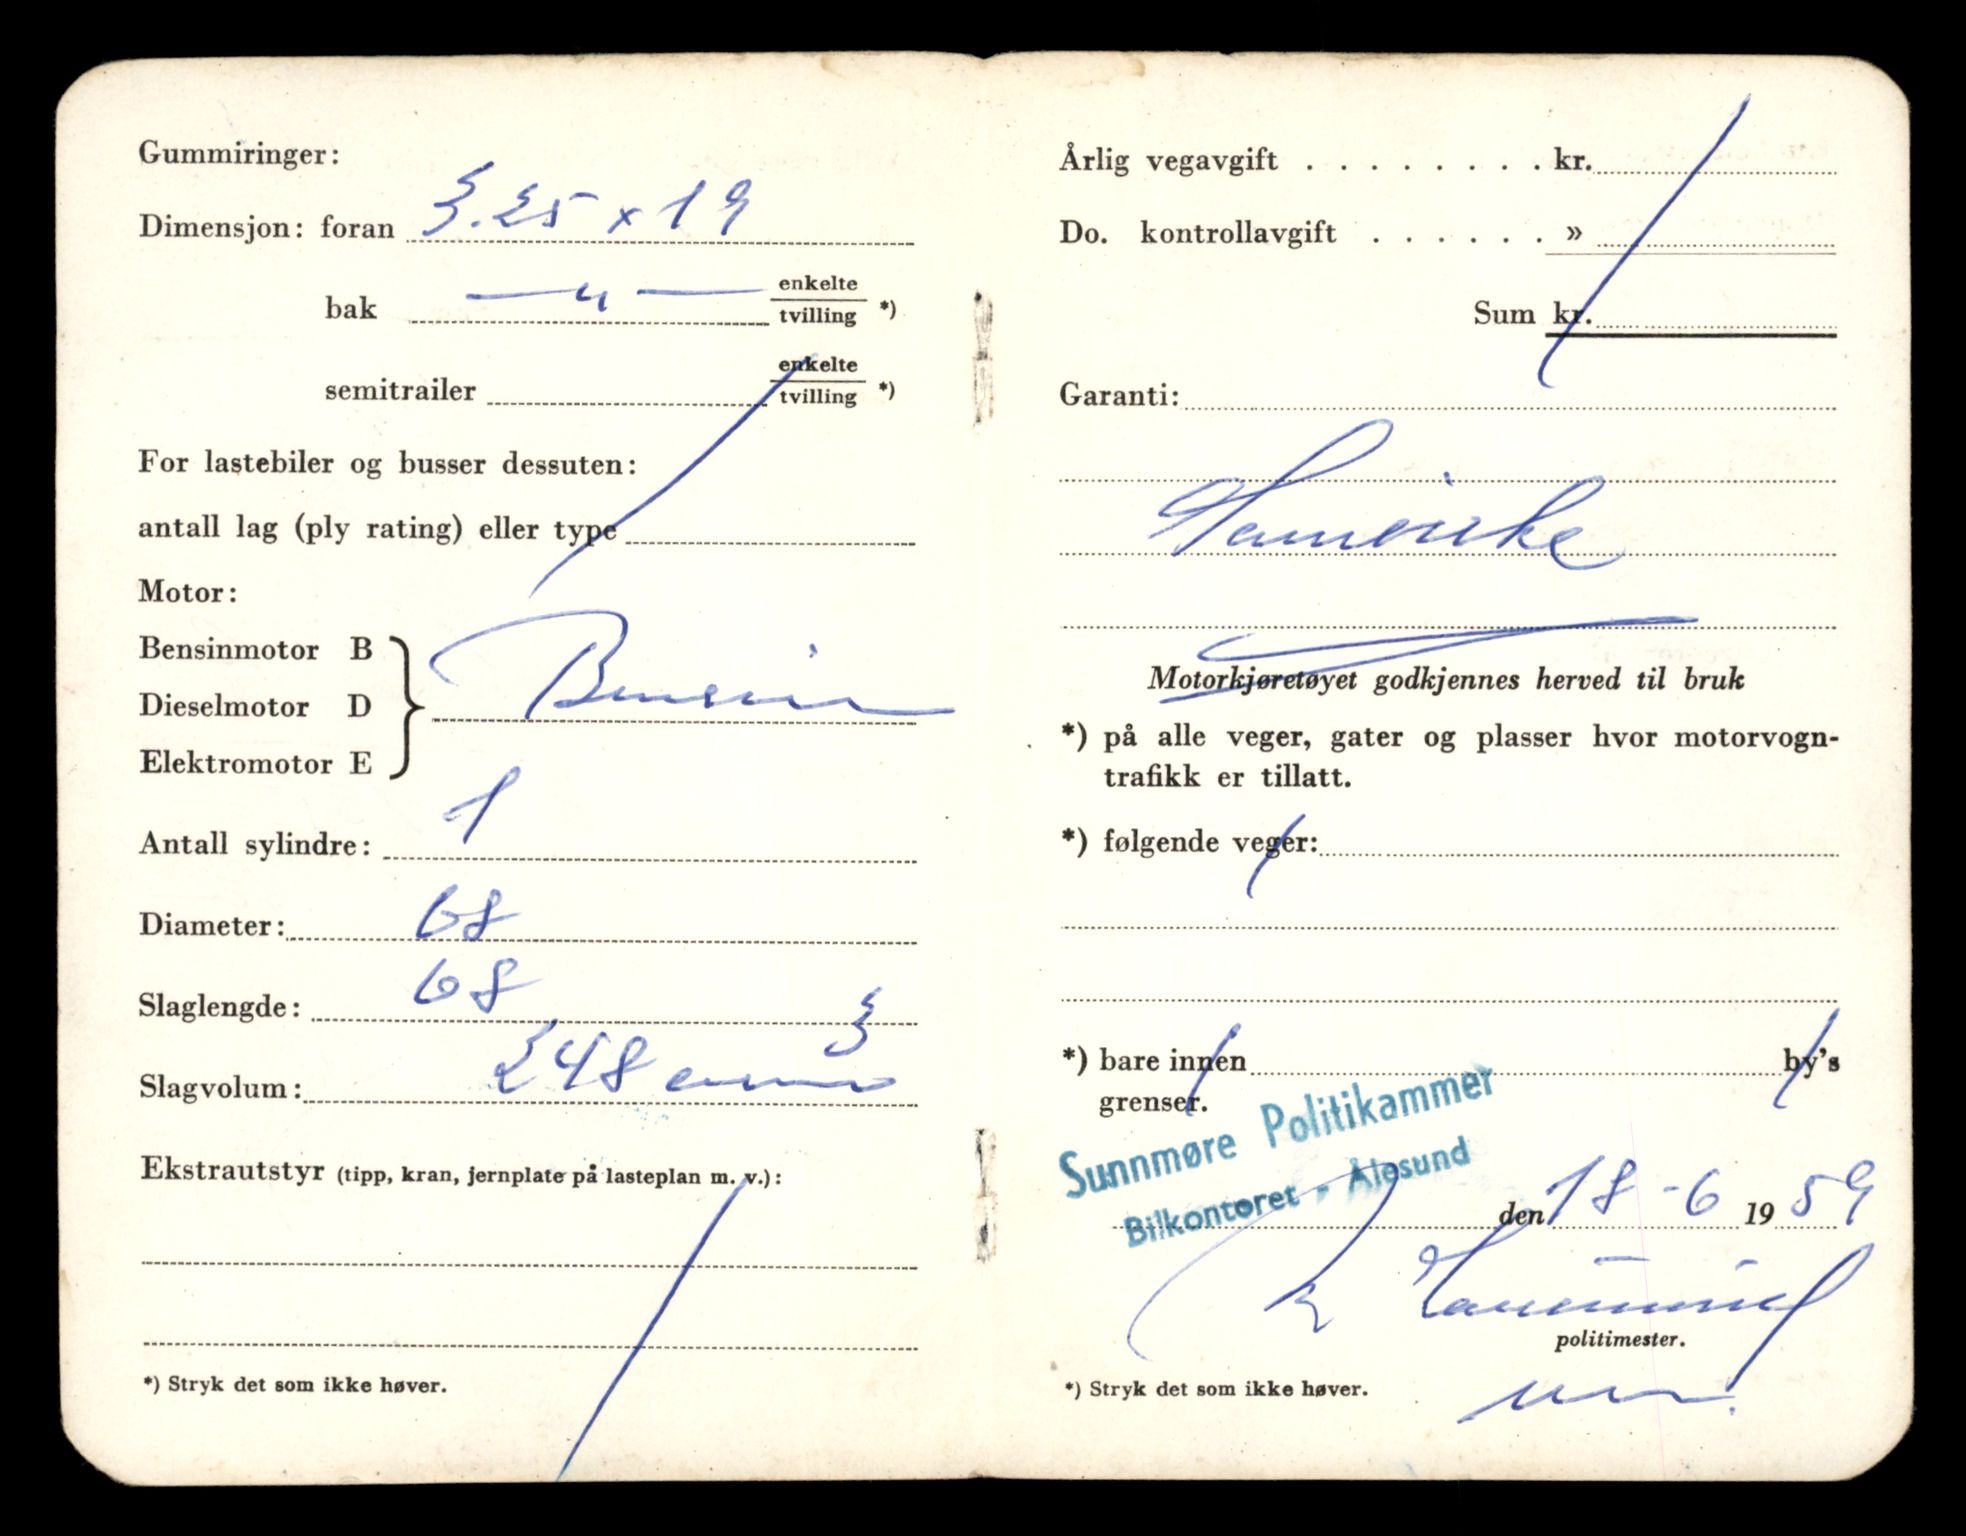 Gummiringer:
Dimensjon: foran 3.25 x 19
bak — " — enkelte
tvilling *)
semitrailer enkelte
tvilling *)
For lastebiler og busser dessuten:
antall lag (ply rating) eller type
Motor:
Bensinmotor B
Dieselmotor D Bensin
Elektromotor E
Antall sylindre: 1
Diameter: 68
Slaglengde: 68
Slagvolum: 248 cm3
Ekstrautstyr (tipp, kran, jernplate på lasteplan m. v.):
*) Stryk det som ikke høver.
Årlig vegavgift . . . . . . . . kr.
Do. kontrollavgift . . . . . . »
Sum kr.
Garanti:
Samvirke
Motorkjøretøyet godkjennes herved til bruk
*) på alle veger, gater og plasser hvor motorvogn-
trafikk er tillatt.
*) følgende veger:
*) bare innen by's
grenser.
Sunnmøre Politikammer
Bilkontoret - Ålesund
den 18-6 1959
politimester.
*) Stryk det som ikke høver.